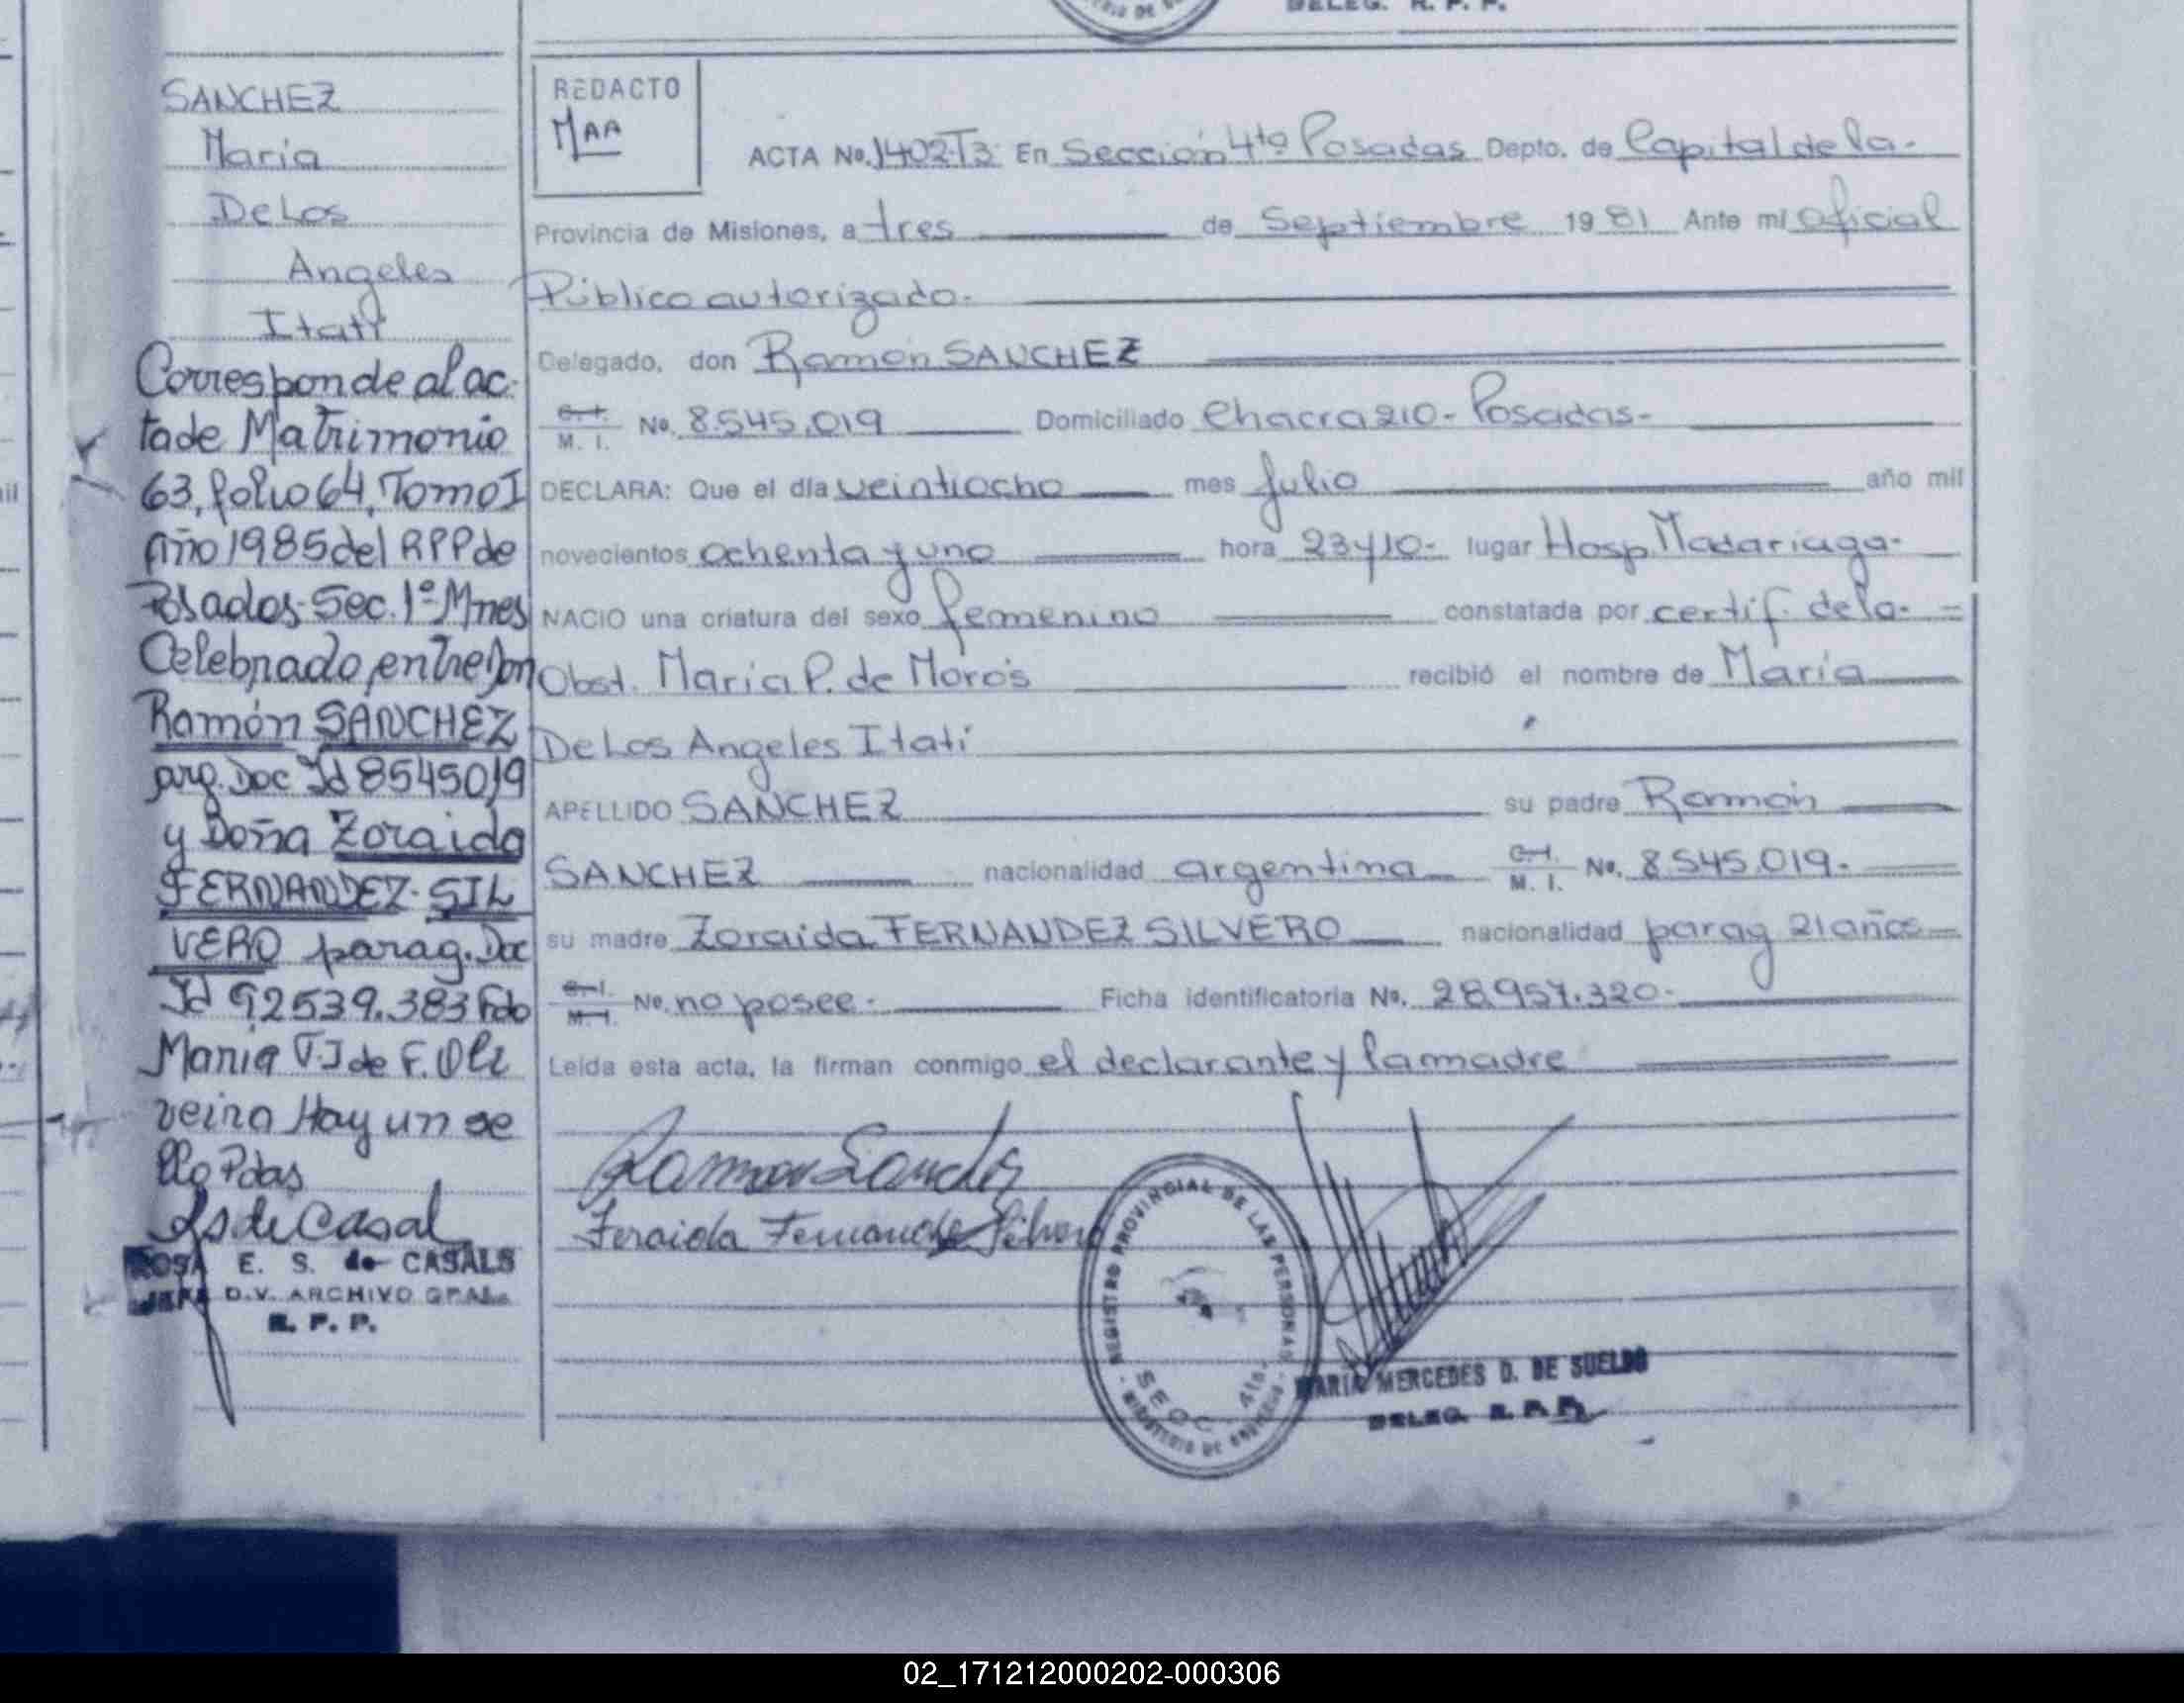 DELEG. R. P. P.
SANCHEZ
Maria
De Los
Angeles
Itatí
Corresponde al ac-
ta de Matrimonio
63, folio 64, Tomo I
Año 1985 del RPP de
Posadas-Sec. 1º-Mnes
Celebrado entre Don
Ramón SANCHEZ
arg. Doc Id 8545019
y Doña Zoraida
FERNANDEZ-SIL
VERO parag. Doc
Id 92539.383 Fdo
Maria T.J de F. Oli
veira Hay un se
llo Pdas
ROSA E. S. de CASALS
JEFE DIV. ARCHIVO GRAL.
R. P. P.
REDACTO
MAA
ACTA No. 1402T3 En Sección 4ta Posadas Depto. de Capital de la-
Provincia de Misiones, a tres de Septiembre 1981 Ante mí oficial
Público autorizado-
Delegado, don Ramón SANCHEZ
C. I.
M. I. No. 8.545.019 Domiciliado Chacra 210- Posadas-
DECLARA: Que el día veintiocho mes Julio año mil
novecientos ochenta y uno hora 23y10- lugar Hosp. Madariaga-
NACIO una criatura del sexo femenino constatada por certif. de la-
Obst. Maria P. de Morós recibió el nombre de María
De Los Angeles Itatí
APELLIDO SANCHEZ su padre Ramón
SANCHEZ nacionalidad argentina C. I.
M. I. No. 8.545.019-
su madre Zoraida FERNANDEZ SILVERO nacionalidad parag 21 años
C. I.
M. I. No. no posee- Ficha identificatoria No. 28.957.320-
Leída esta acta, la firman conmigo el declarante y la madre
Ramon Sanchez
Zoraida Fernandez Silvero
REGISTRO PROVINCIAL DE LAS PERSONAS
SECC. 4ta.
MINISTERIO DE GOBIERNO
MARIA MERCEDES D. DE SUELDO
DELEG. R. P. P.
02_171212000202-000306